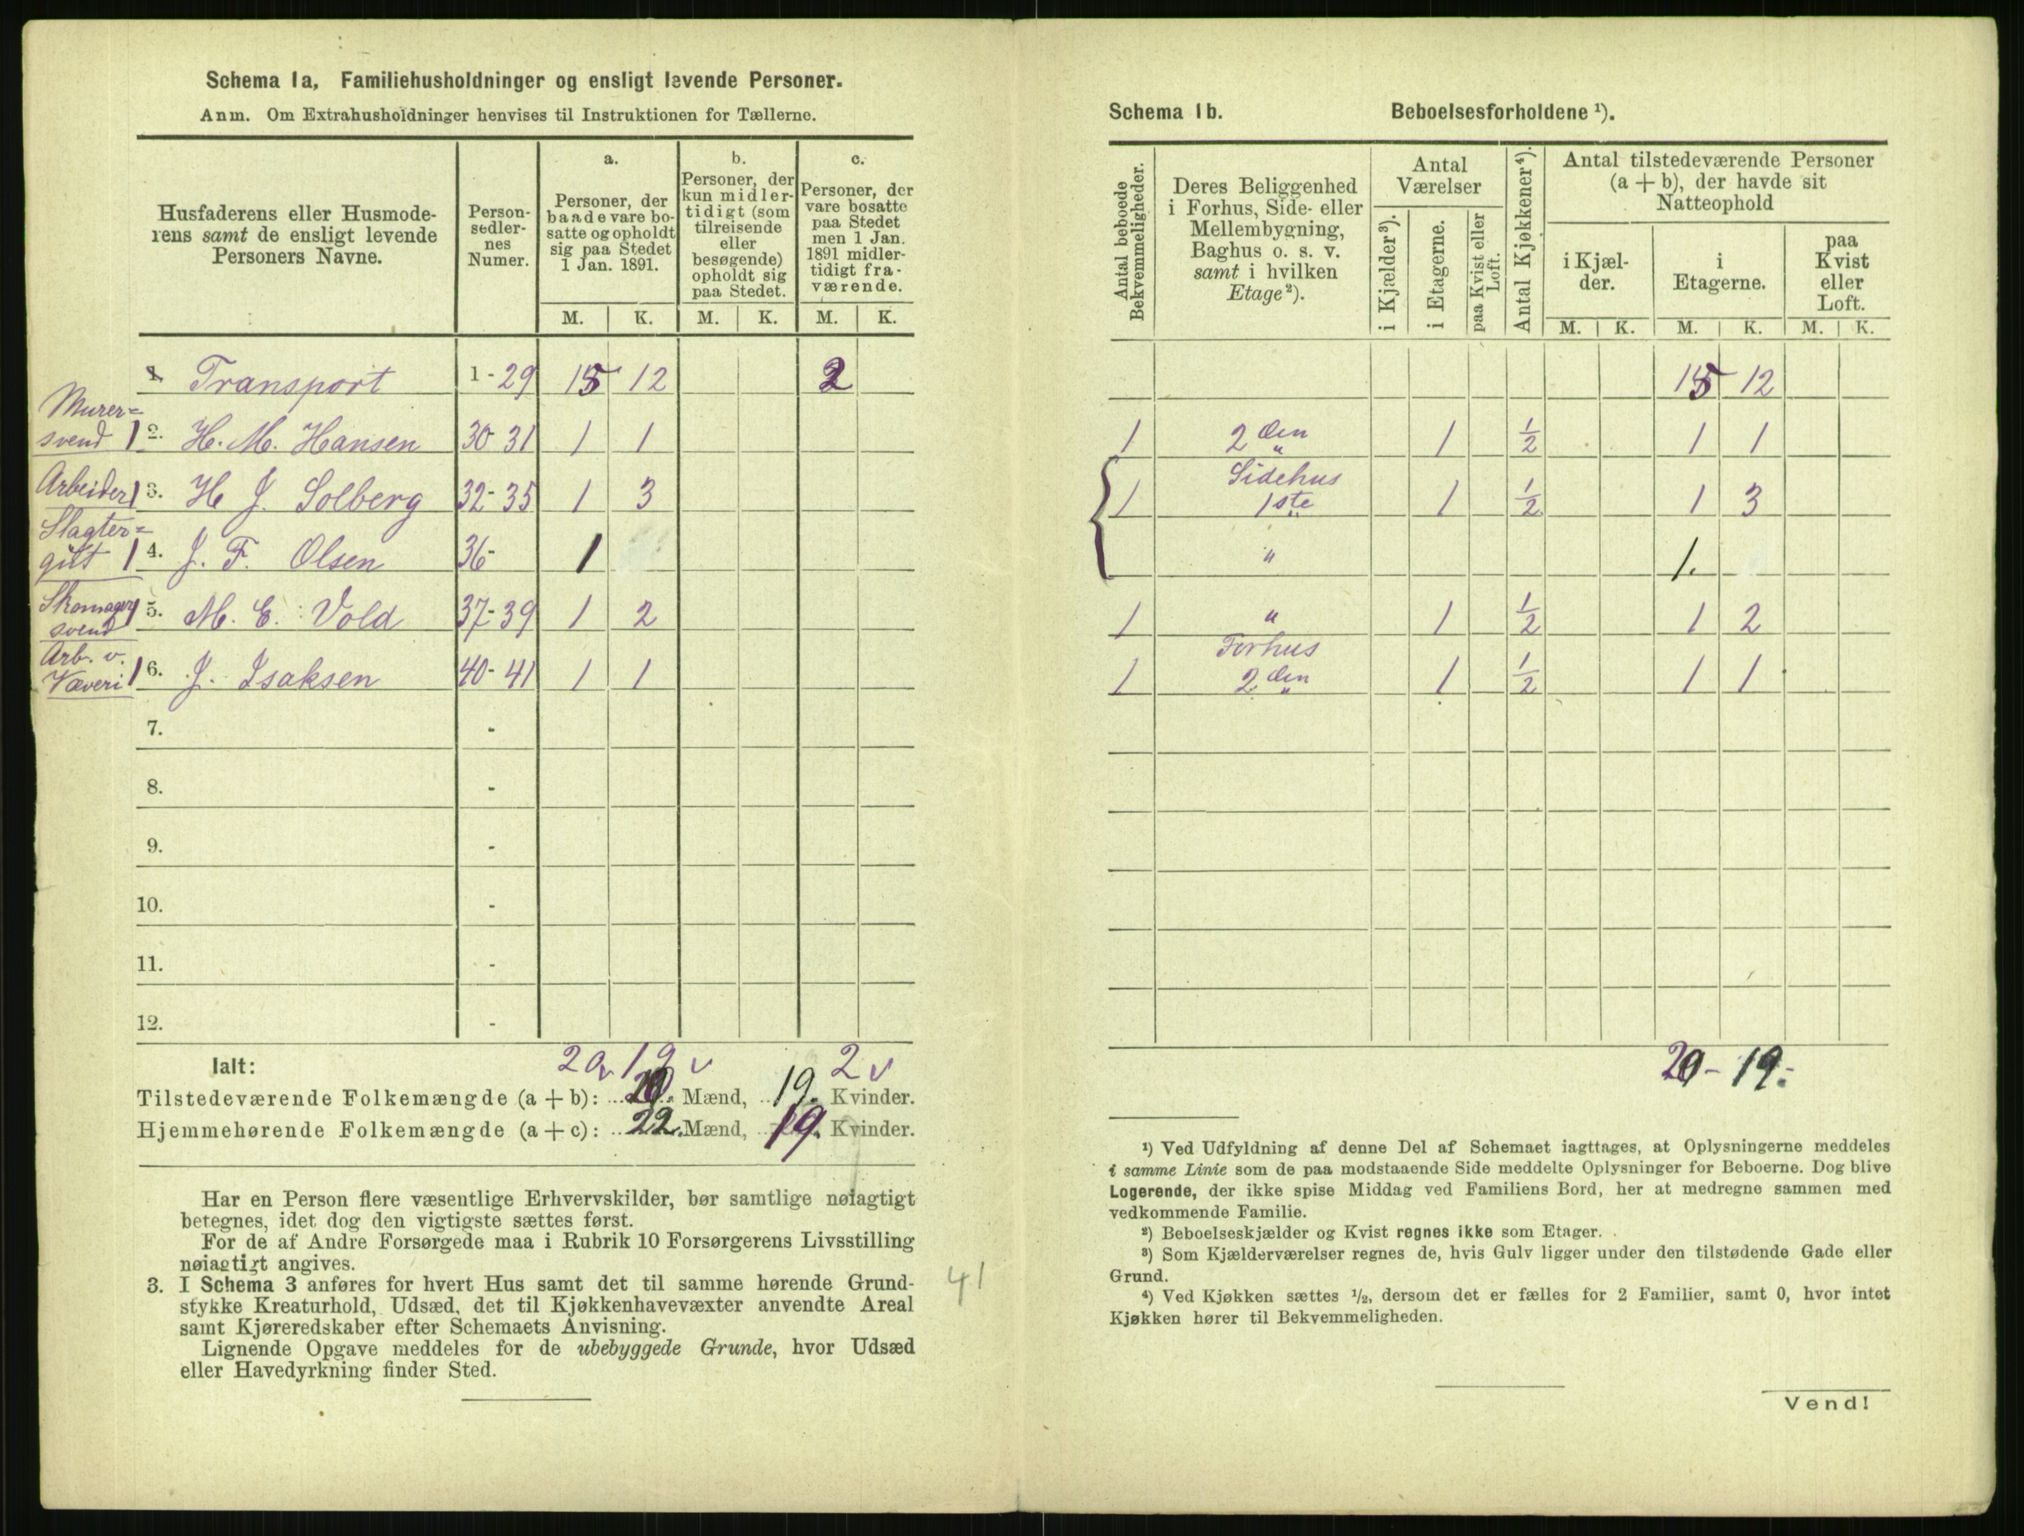 Schema 1a, Familiehusholdninger og ensligt levende Personer.
Anm. Om Extrahusholdninger henvises til Instruktionen for Tællerne.
Husfaderens eller Husmoderens samt de ensligt levende Personers Navne.
Personsedlernes Numer.
a. Personer, der baade vare bosatte og opholdt sig paa Stedet 1 Jan. 1891.
b. Personer, der kun midlertidigt (som tilreisende eller besøgende) opholdt sig paa Stedet.
c. Personer, der vare bosatte paa Stedet men 1 Jan. 1891 midlertidigt fraværende.
M. K. M. K. M. K.
1 Transport 1-29 15 12 2
Murersvend 1 2. H. M. Hansen 30-31 1 1
Arbeider 1 3. H J. Solberg 32-35 1 3
Slagtergut 1 4. J. F. Olsen 36- 1
Skomagersvend 1 5. M. E. Vold 37-39 1 2
Arb. v. Væveri 1 6. J. Isaksen 40-41 1 1
7. -
8. -
9. -
10. -
11. -
12. -
Ialt: 20 v 19 v 2 v
Tilstedeværende Folkemængde (a + b): 20. Mænd, 19. Kvinder.
Hjemmehørende Folkemængde (a + c): 22. Mænd, 19. Kvinder.
Har en Person flere væsentlige Erhvervskilder, bør samtlige nøiagtigt
betegnes, idet dog den vigtigste sættes først.
For de af Andre Forsørgede maa i Rubrik 10 Forsørgerens Livsstilling
nøiagtigt angives.
3. I Schema 3 anføres for hvert Hus samt det til samme hørende Grund-
stykke Kreaturhold, Udsæd, det til Kjøkkenhavevæxter anvendte Areal
samt Kjøreredskaber efter Schemaets Anvisning.
Lignende Opgave meddeles for de ubebyggede Grunde, hvor Udsæd
eller Havedyrkning finder Sted.
41
Schema 1b. Beboelsesforholdene ¹).
Antal beboede Bekvemmeligheder.
Deres Beliggenhed i Forhus, Side- eller Mellembygning, Baghus o. s. v. samt i hvilken Etage²).
Antal Værelser
i Kjælder³).
i Etagerne.
paa Kvist eller Loft.
Antal Kjøkkener⁴).
Antal tilstedeværende Personer (a + b), der havde sit Natteophold
i Kjælder.
i Etagerne.
paa Kvist eller Loft.
M. K. M. K. M. K.
15 12
1 2den " 1 1/2 1 1
Sidehus
1 1ste " 1 1/2 1 3
" 1.
1 " 1 1/2 1 2
Forhus
1 2den " 1 1/2 1 1
20- 19.-
¹) Ved Udfyldning af denne Del af Schemaet iagttages, at Oplysningerne meddeles
i samme Linie som de paa modstaaende Side meddelte Oplysninger for Beboerne. Dog blive
Logerende, der ikke spise Middag ved Familiens Bord, her at medregne sammen med
vedkommende Familie.
²) Beboelseskjælder og Kvist regnes ikke som Etager.
³) Som Kjælderværelser regnes de, hvis Gulv ligger under den tilstødende Gade eller
Grund.
⁴) Ved Kjøkken sættes ½, dersom det er fælles for 2 Familier, samt 0, hvor intet
Kjøkken hører til Bekvemmeligheden.
Vend!